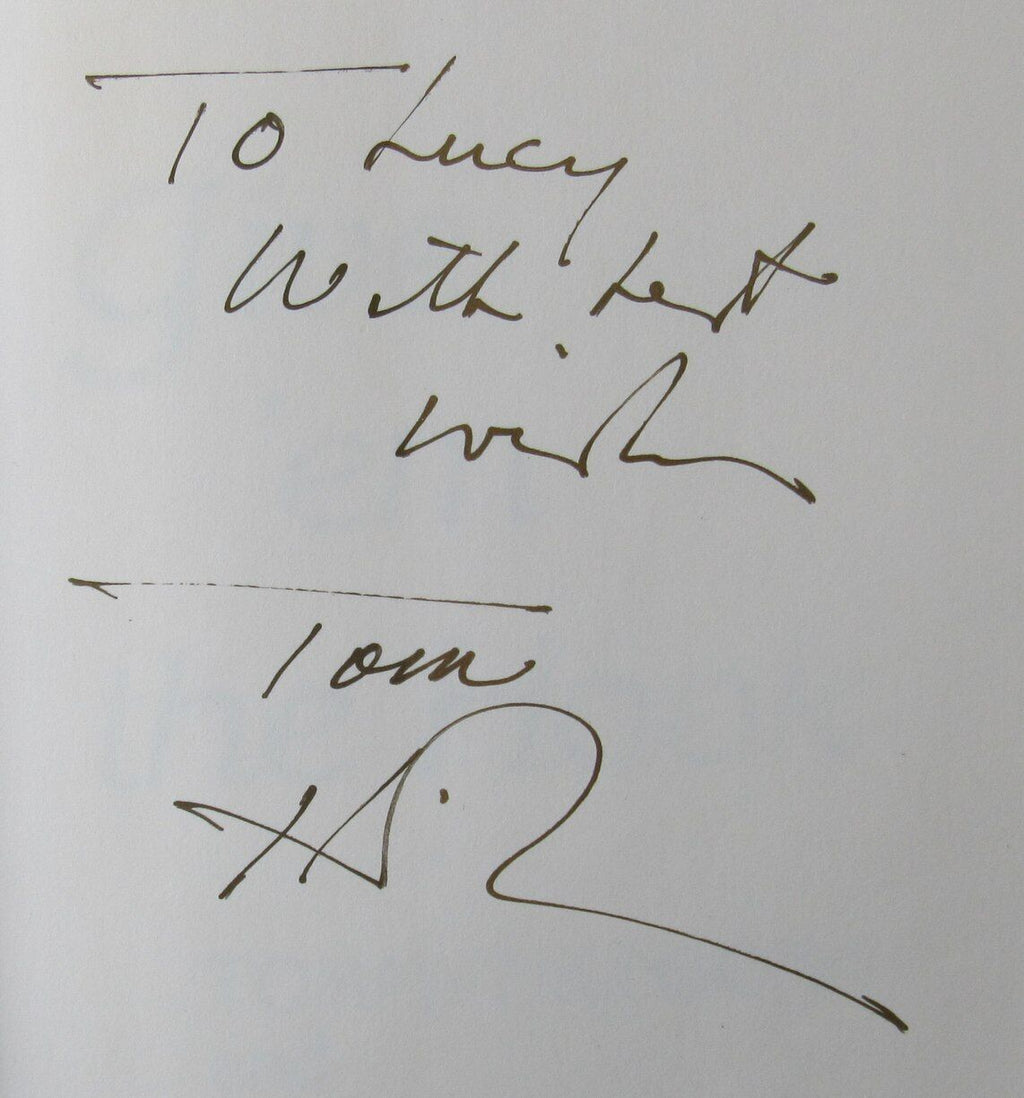 To Lucy
With best
wishes
Tom